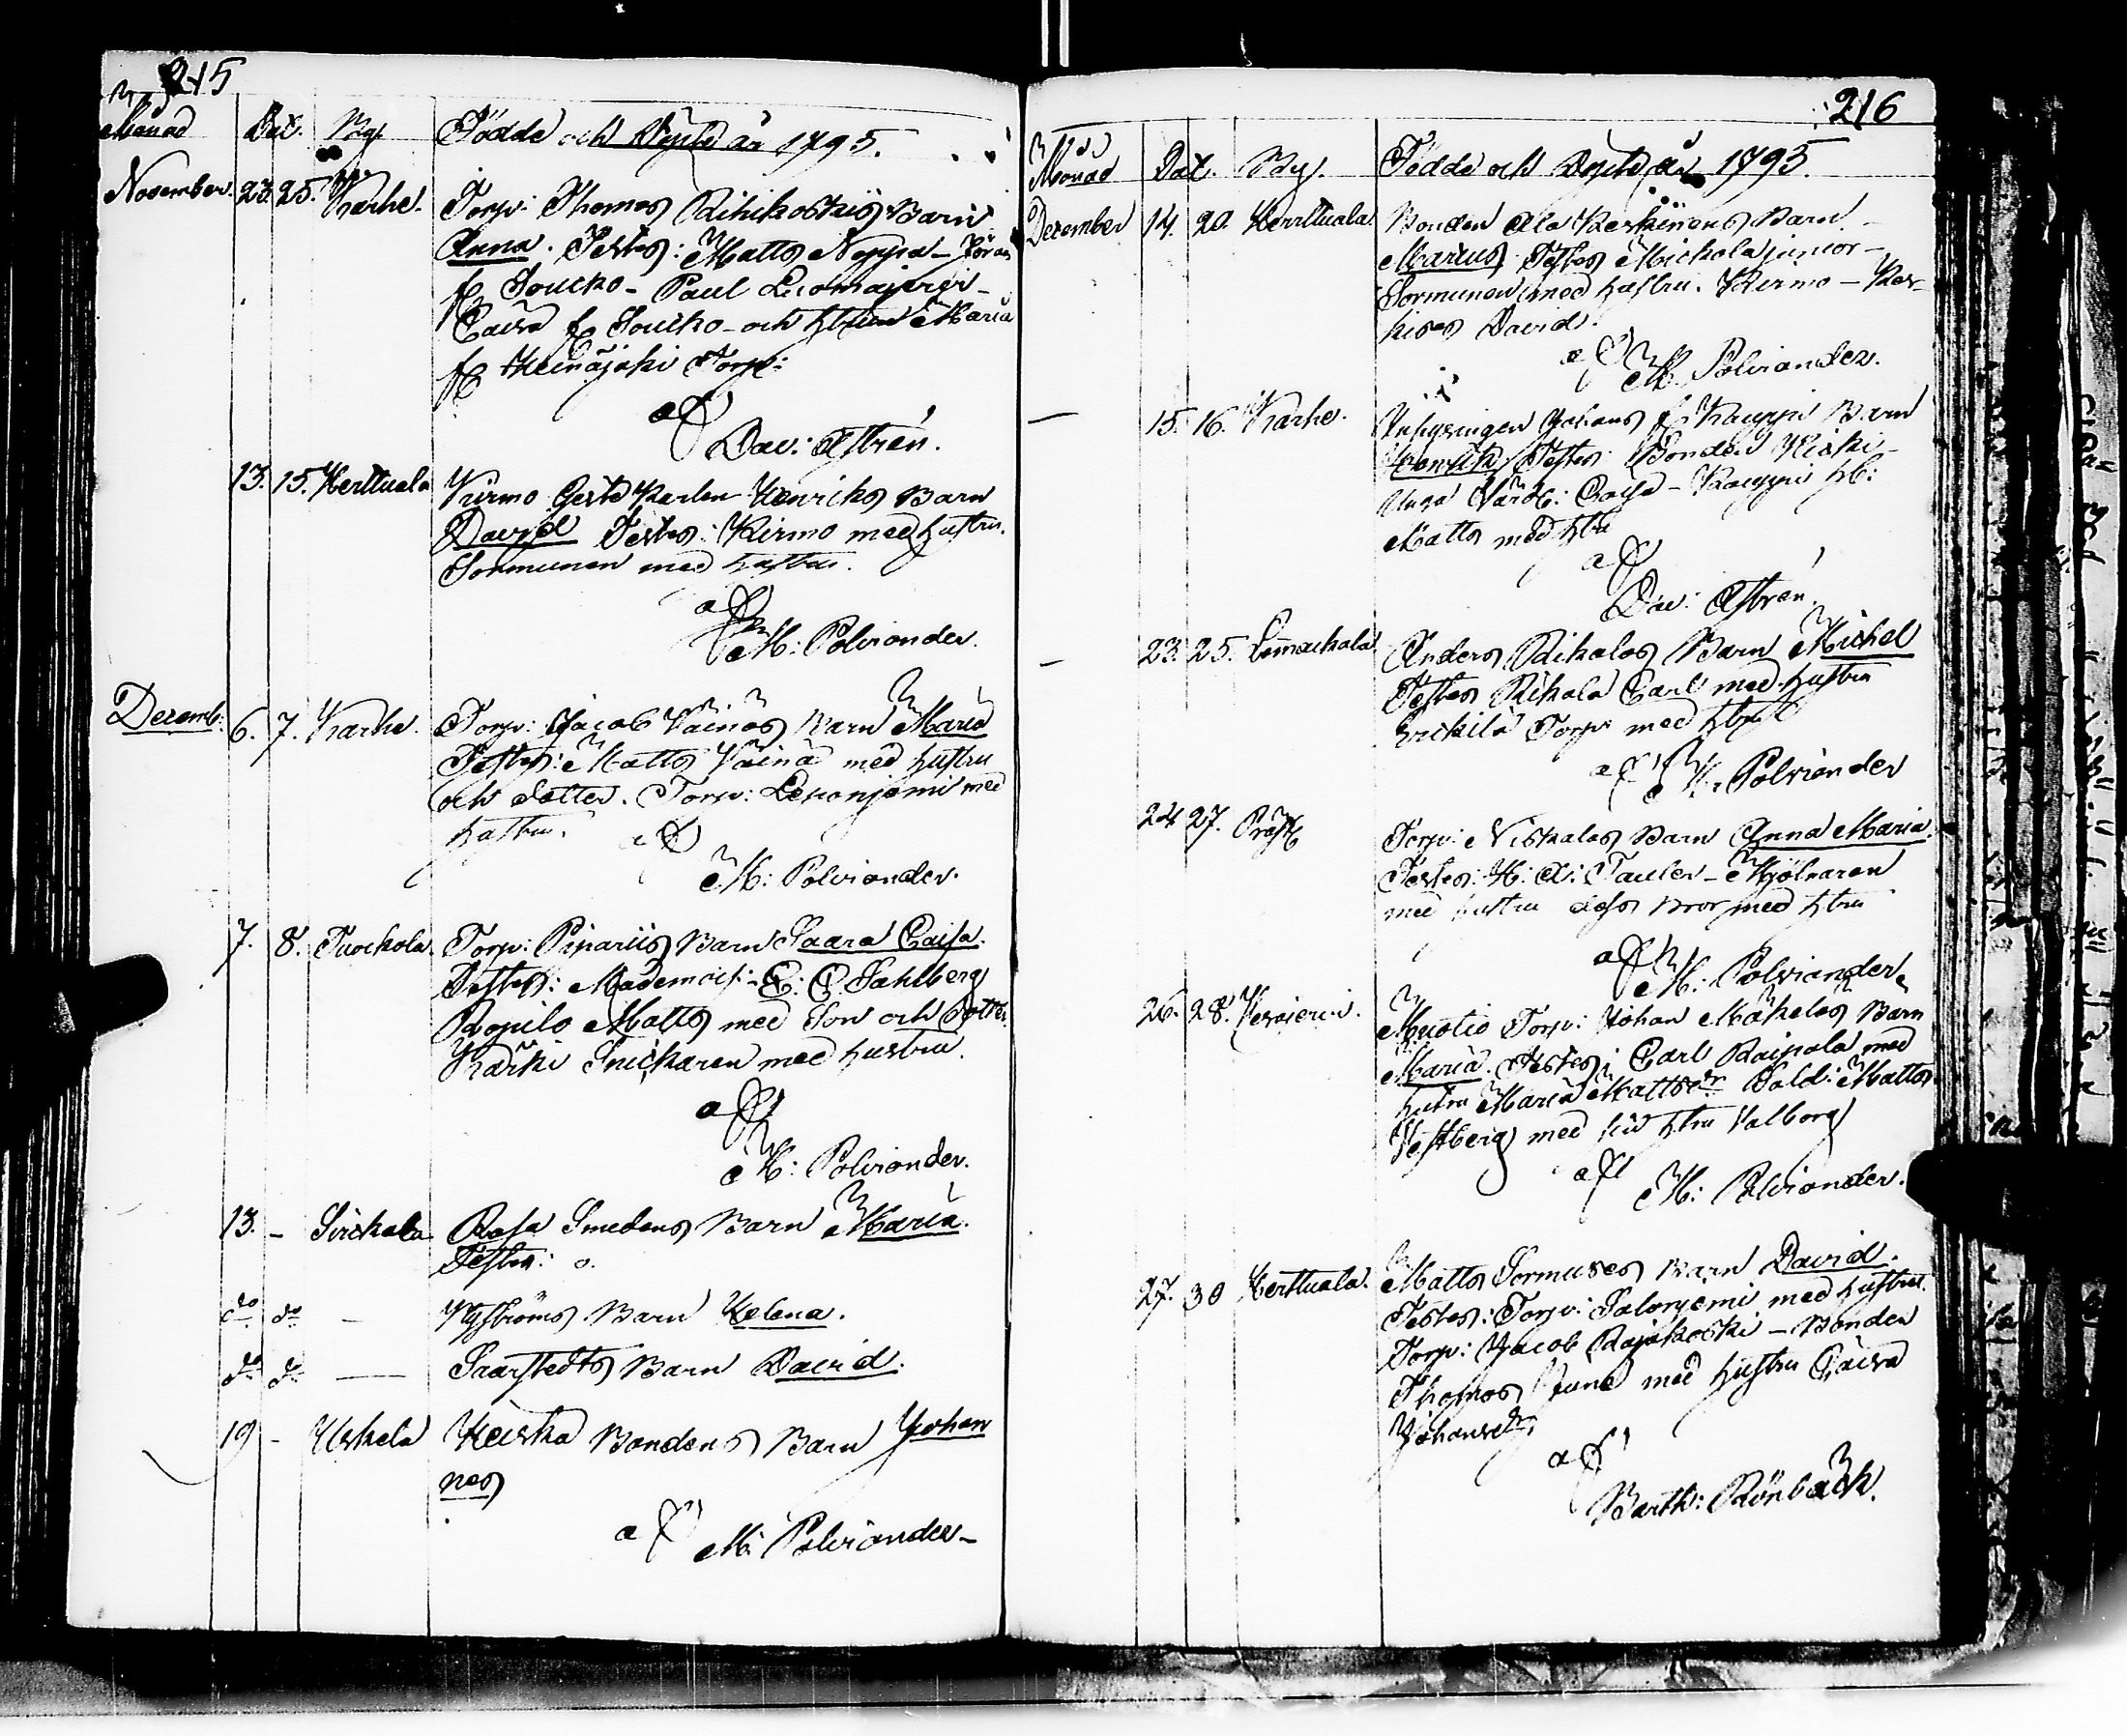 215
Månad Dat. By. Födde och Döpte år 1795.
November. 23. 25. Karhe. Torp: Thomas Riihikoskis Barn
Anna. Testes: Matts Neppa - Jöran
Soucko - Paul Luomajervi -
Caisa Soucko - och hustrun Maria
Heinäjoki Torp:
af
Dav: Astrén.
13. 15. Herttuala Kirmo Geste Karlen Henriks Barn
David Testes: Kirmo med hustru.
Sormunen med hustru.
af
M: Polviander.
Decemb: 6. 7. Karhe. Torp: Jacob Väinös Barn Maria
Testes: Matts Väinä med hustru
och dotter. Torp: Lehonjemi med
hustru.
af
M: Polviander.
7. 8. Tuockola. Torp: Pinariis Barn Saara Caisa.
Testes: Mademois: E: C. Sahlberg
Ropilo Matts med Son och Dotter.
Kärki Snickaren med hustru.
af
M: Polviander.
13. - Sirckala Rasa Smedens Barn Maria.
Testes: o.
do do — Nyströms Barn Helena.
do do — Saarstedts Barn David.
19 - Uskela Heiska Bondens Barn Johan
nes
af
M: Polviander -
216
Månad Dat. By. Födde och Döpte år 1795.
December 14. 20. Herrttuala. Bonden Ala Keskinens Barn -
Marcus. Testes Mickola junior -
Sormunen med hustru. Kirmo - Kes-
kises David.
af
M. Polviander.
— 15. 16. Karhe. Inhysingen Johans Kauppi Barn
Henrik Testes: Bonden Heiki -
Caisa - Kauppi
Matts med htru
af
Dav: Astrén.
— 23. 25. Lemmackala Anders Rikalas Barn Michel
Testes Rikala Carl med hustru
Erickilä Torp: med htru
af
M: Polviander
24 27. Präst Torp: Niskalas Barn Anna Maria.
Testes: H: A: Tauler - Mjölnaren
med hustru dess Bror med htru
af
M: Polviander.
26. 28. Vesajervi. Muotio Torp: Johan Mäkelas Barn
Maria. Testes: Carl Raipala med
hustru Maria Mattsdr Sold: Matts
Vestberg med sin htru Valborg
af
M: Polviander.
27. 30 Herttuala. Matts Sormuses Barn David.
Testes: Torp: Salonjemi med hustru.
Torp: Jacob Rajakoski - Bonden
Thomas Juna med hustru Caisa
Johansdr
af
Barth: Rönback.